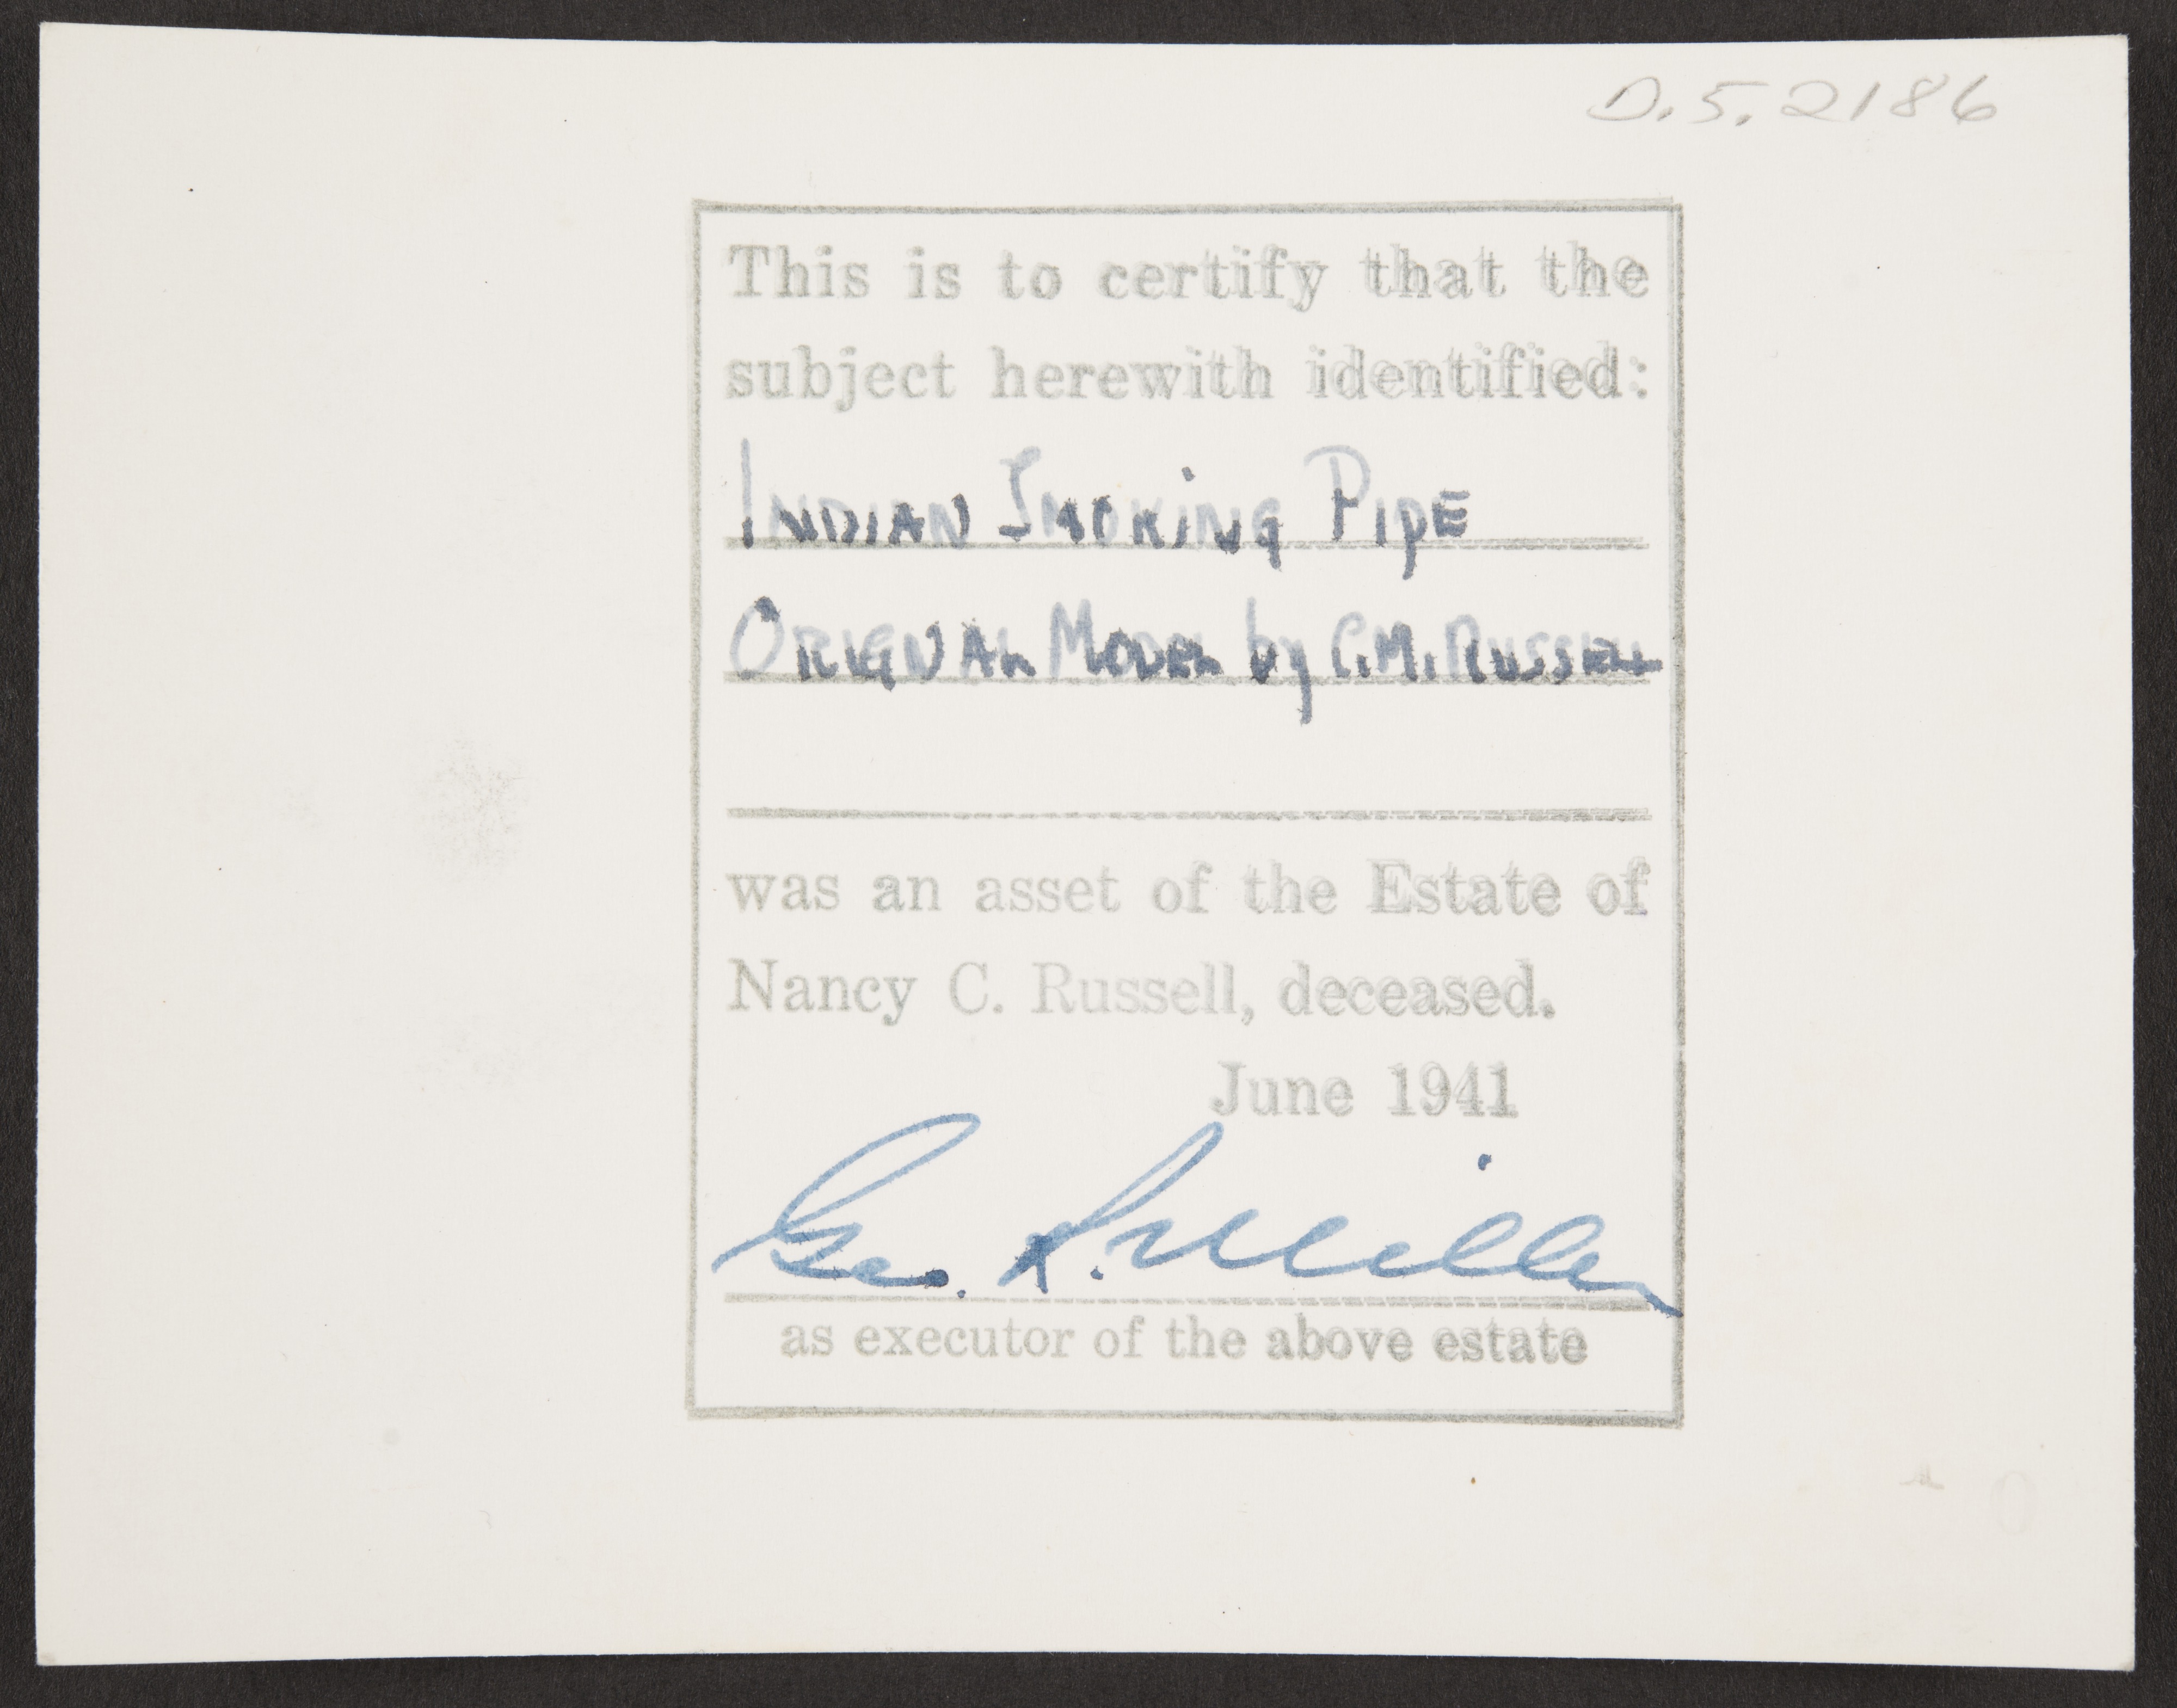 D.5.2186
This is to certify that the
subject herewith identified:
INDIAN SMOKING PIPE
ORIGNAL MODEL by C.M. RUSSELL
was an asset of the Estate of
Nancy C. Russell, deceased.
June 1941
Geo. R. Miller
as executor of the above estate